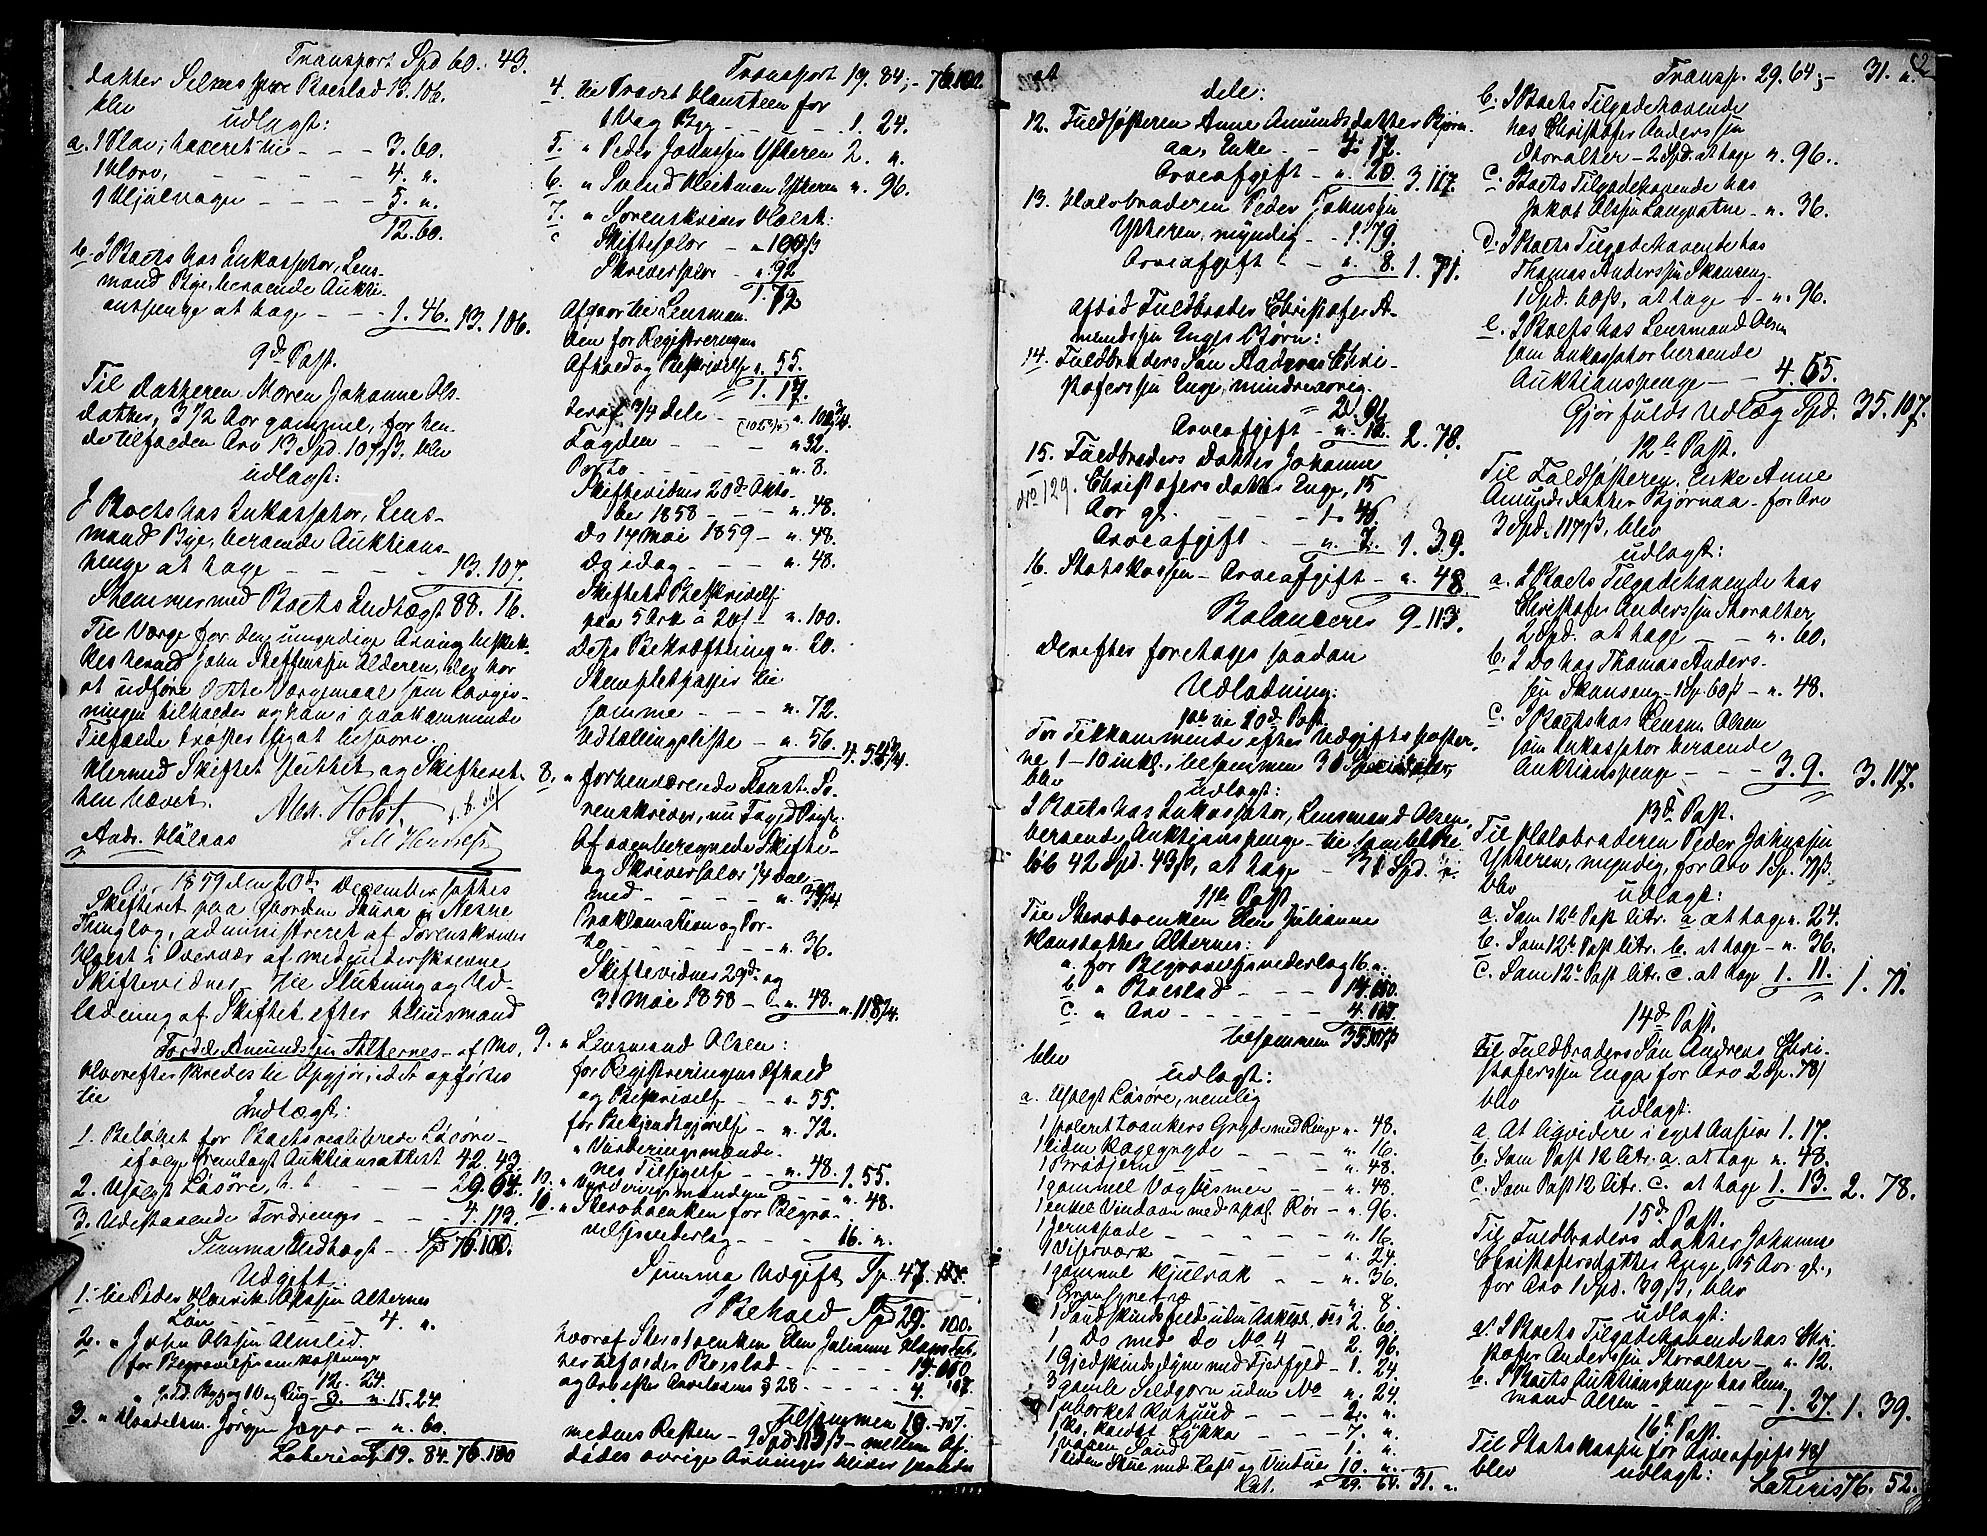 Transport Spd 60. 43.
datter Selnes for Boeslod 13. 106.
blev udlagt:
a. 1 Slav, taxeret til - - - 3. 60.
- - - - - 4. "
1 Hjulvogn - - - - 5. "
12. 60.
b. I Boets hos Inkassator, Lens-
mand Bye, beroende Aukti-
onspenge at tage - - - 1. 46. 13. 106.
9de Post.
Til datteren Maren Johanne Ols-
datter, 3 1/2 Aar gammel, for hen-
de tilfalden Arv 13 Spd. 107 β, blev
udlagt:
I Boets hos Inkassator, Lens-
mand Bye, beroende Auktions-
penge at tage - - - - - 13. 107.
Stemmer med Boets Indtægt 88. 16.
Til Værge for den umyndige Arving beskik-
kes herved John Steffenssen Alderen, der har
at udføre dette Værgemaal som Lovgiv-
ningen tilholder og kan i paakommende
Tilfælde trøster sig at besvare.
Hermed Skiftet sluttet og Skifteret-
ten hævet.
Alex. Holst.
Andr. Hälaas
Aar 1859 den 20de December sattes
Skifteret paa Gaarden Skura i Nesne
Thinglag, administreret af Sorenskriver
Holst i Overvær af medunderskrevne
Skiftevidner - til Slutning og Ud-
lodning af Skiftet efter Huusmand
Tordel Amundssen Alternes - af Mo,
Hvorefter skredes til Opgjør, idet opførtes
til
Indtægt:
1. Beløbet for Boets realiserede Løsøre -
ifølge fremlagt Auktionsattest 42. 43.
2. Usolgt Løsøre, - - - - 29. 64.
3. Udestaaende Fordringer - - - 4. 113.
Summa Indtægt - Spd 76. 100.
Udgift:
1. til Peder Henrik Olssen Alternes
Løn - - - - 4. "
2. " Johan Olssen Almlid
for Begravelsesomkostninger
12. 24.
3. " 15. 24
3. " Handelsm. Jørgen Jæger - - " 60.
Lateris 19. 84. 76. 100
Transport 19. 84. - 76. 100.
4. til Provst Hansteen for
1 Vog Byg - - - - - 1. 24.
5. " Peder Johnssen Ytteren 2. "
6. " Svend Heitman Ytteren " 96.
7. " Sorenskriver Holst:
Skiftesalær - " 100 β
Skriversalær - " 92
1. 72
Afgaar til Lensman-
den for Registreringens
Afhold og Beskrivelse " 55.
1. 17.
heraf 3/4 dele - (105 3/4) " 102 3/4
Fogden - - - - " 32.
Porto - - - - - " 8.
Skiftevidner 20de Okto-
ber 1858 - - - - " 48.
ds 14 Mai 1859 - " 48.
og idag - - - - " 48.
Skiftets Beskrivelse
paa 5 Ark à 20 β " 100.
dets Bekræftning " 20.
Stempletpapir til
samme - - - " 72.
Udtællingsliste - " 56. 4. 5 3/4
8. " forhenværende Konst. So-
renskriver, nu Foged
Af ovenberegnede Skifte-
og Skriversalær 1/4 del
med - - - - - " 35 1/4
Proklamation og Por-
to - - - - - " 36.
Skiftevidner 29de og
31 Mai 1858 - - " 48. " 118 1/4.
9. " Lensmand Olsen:
for Registreringens Afhold
og Beskrivelse - - " 55.
for Bekjendtgjørelse - " 72.
" Vurderingsmænde-
nes Tilsigelse - - " 48. 1. 55.
10. " Vurderingsmændene - - " 48.
10. " Sterboenken for Begra-
velsesvederlag - - - - 16. "
Summa Udgift Sp. 47.
I Behold Spd 29. 100.
hvoraf Sterboenken Elen Julianne Hansdat-
ter tilfalder Boeslod - - - - -
og Arv efter Arvelovens § 28 - - - - - 4. 107.
Tilsammen 19. 107.
medens Resten - 9 Spd. 113 β - mellem Af-
dødes øvrige Arvinger bliver saaledes
at
dele:
12. Fuldsøsteren Anne Amundsdatter Bjørn-
aa, Enke - - 4. 17.
Arveafgift - " 20. 3. 117.
13. Halvbroderen Peder Johnssen
Ytteren, myndig - - 1. 79.
Arveafgift - - " 8. 1. 71.
Afdød Fuldbroder Christofer A-
mundssen Enges Børn:
14. Fuldbroders Søn Andreas Chri-
stoferssen Enge, mindreaarig.
2. 91
Arveafgift - " 12. 2. 78.
15. Fuldbroders datter Johanne
No 129. Christofersdatter Enge, 15
Aar gl. - - - - 1. 46.
Arveafgift - - " 7. 1. 39.
16. Statskassen - Arveafgift - " 48
Balancerer 9 - 113.
Derefter foretages saadan
Udlodning:
1ste til 10de Post.
For Tilkommende efter Udgiftsposter-
ne 1 - 10 inkl., tilsammen 31 Speciedaler,
blev udlagt:
I Boets hos Inkassator, Lensmand Olsen,
beroende Auktionspenge - til samlet Be-
løb 42 Spd. 43 β, at tage - 31 Spd. "
11te Post
Til Sterboenken Elen Julianne
Hansdatter Alternes:
a. for Begravelsesvederlag 16. "
b. " Boeslod - - - -
c. " Arv - - - - - - 4. 107
tilsammen 35. 107 β
blev udlagt:
a. Usolgt Løsøre, nemlig
1 poleret toankers Gryde med Ringe " 48.
1 liden Kogegryde - - - - " 16.
1 Brødjern - - - - - " 48.
1 gammel Vogbismer - - " 48.
1 enkel Vindovn med Rør - " 96.
1 Jernspade - - - - - - " 16.
1 Visperværk - - - - - " 24.
1 gammel Hjulrok - - " 36.
" 8.
1 uden Aaklæde 2. 60.
1 Do med Do No 4 - - 2. 96.
1 Gjedskindsdyne med Fjerfyld - 1. 24.
3 gamle Sildgarn uden No " 24.
1 uborket Kohuud - - - 2. "
1 Ko, kaldet Lykka - - 7. "
1 voxen Saud - - - - 1. "
1 liden Stue med Loft og Vindue 10. "
Lat. " 29. 64. 31. "
Transp. 29. 64; - 31. "
b. I Boets Tilgodehavende
hos Christofer Anderssen
Storalter - 2 Spd. at tage " 96.
c. I Boets Tilgodehavende hos
Jakob Olssen Langvatne - " 36.
d. I Boets Tilgodehavende hos
Thomas Anderssen Skanseng
1 Spd. 60 β, at tage - - " 96.
e. I Boets hos Lensmand Olsen
som Inkassator beroende
Auktionspenge - - 4. 55.
Gjør fuldt Udlæg Spd. 35. 107.
12te Post.
Til Fuldsøsteren, Enke Anne
Amundsdatter Bjørnaa - for Arv
3 Spd. 117 β, blev
udlagt:
a. I Boets Tilgodehavende hos
Christofer Anderssen Storalter
2 Spd. at tage - - - " 60.
b. I Do hos Thomas Anders-
sen Skanseng - 1 Sp. 60 β - " 48.
c. I Boets hos Lensm. Olsen
som Inkassator beroende
Auktionspenge - - - 3. 9. 3. 117.
13de Post.
Til Halvbroderen Peder Johnssen
Ytteren, myndig, for Arv 1 Sp. 71 β.
blev udlagt:
a. Som 12te Post litr. a at tage " 24.
b. Som 12te Post litr. b. at tage - " 36.
c. Som 12te Post litr. c. at tage 1. 11. 1. 71.
14de Post.
Til Fuldbroders Søn Andreas Chri-
stoferssen Enge for Arv 2 Sp. 78 β
blev udlagt:
a. At likvidere i eget Ansvar 1. 17.
b. Som Post 12 litr. a. at tage " 48.
c. Som Post 12 litr. c. at tage 1. 13. 2. 78.
15de Post.
Til Fuldbroders datter Johanne
Christofersdatter Enge, 15 Aar gl.,
for Arv 1 Spd. 39 β, blev
udlagt:
a. I Boets Tilgodehavende hos Chri-
stofer Anderssen Storalter - " 12.
b. I Boets Auktionspenge hos Lens-
mand Olsen - - - - - 1. 27. 1. 39.
16de Post.
Til Statskassen for Arveafgift 48 β
blev udlagt:
Lateris 76. 52.